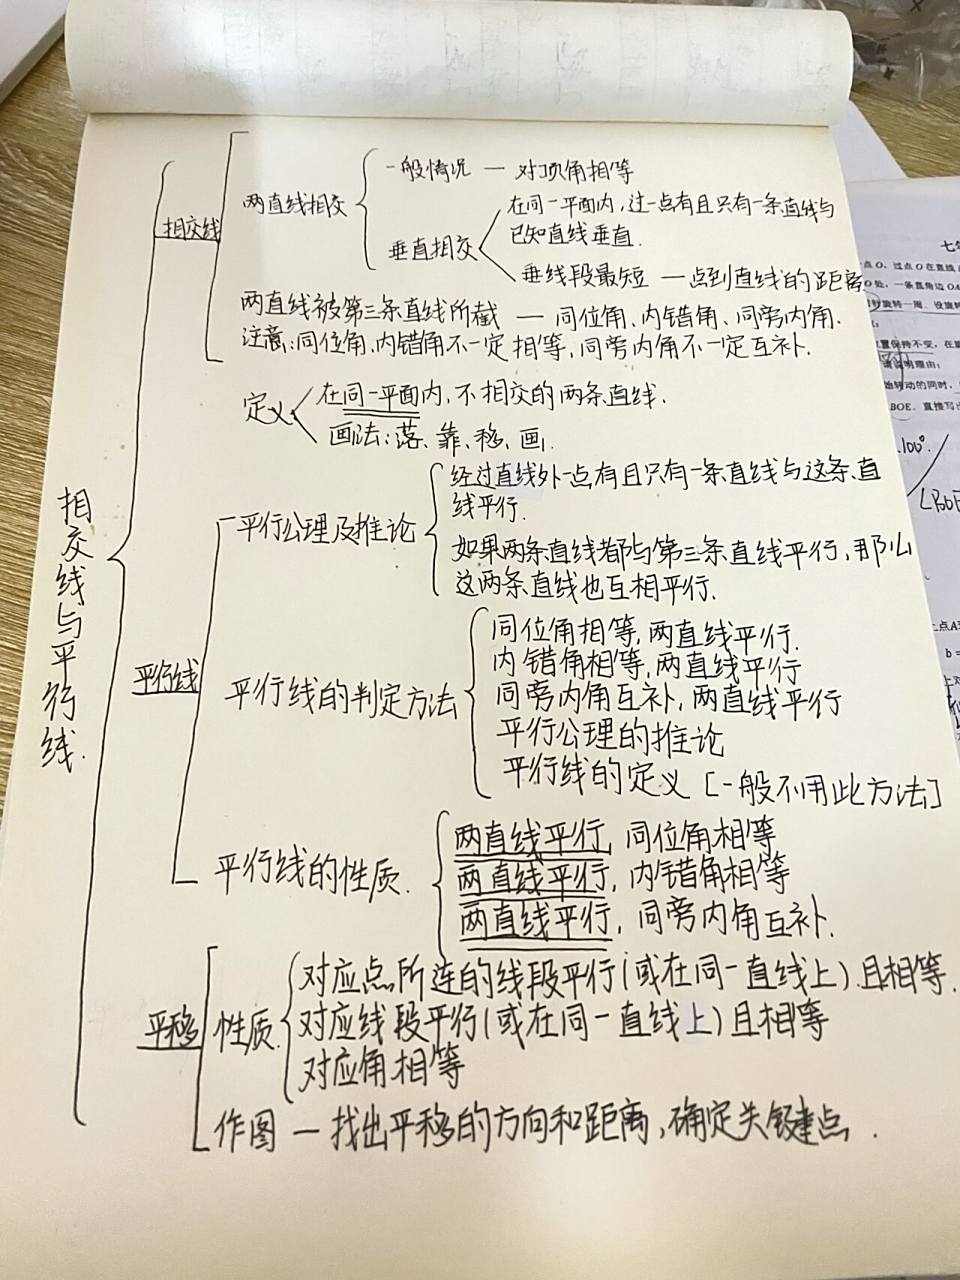 相交线与平行线.
相交线
两直线相交
一般情况 — 对顶角相等
垂直相交
在同一平面内,过一点有且只有一条直线与
已知直线垂直.
垂线段最短 — 点到直线的距离
两直线被第三条直线所截 — 同位角、内错角、同旁内角.
注意:同位角、内错角不一定相等,同旁内角不一定互补.
平行线
定义
在同一平面内,不相交的两条直线.
画法:落、靠、移、画.
平行公理及推论
经过直线外一点有且只有一条直线与这条直
线平行.
如果两条直线都与第三条直线平行,那么
这两条直线也互相平行.
平行线的判定方法
同位角相等,两直线平行.
内错角相等,两直线平行
同旁内角互补,两直线平行
平行公理的推论
平行线的定义 [一般不用此方法]
平行线的性质.
两直线平行,同位角相等
两直线平行,内错角相等
两直线平行,同旁内角互补.
平移
性质.
对应点所连的线段平行(或在同一直线上)且相等.
对应线段平行(或在同一直线上)且相等
对应角相等
作图 — 找出平移的方向和距离,确定关键点.
点O,过点O在直线
处,一条直角边OA
旋转一周,设旋转
置保持不变,在
说明理由;
始转动的同时,
BOE,直接写出
100°.
∠BOE
点A
b =